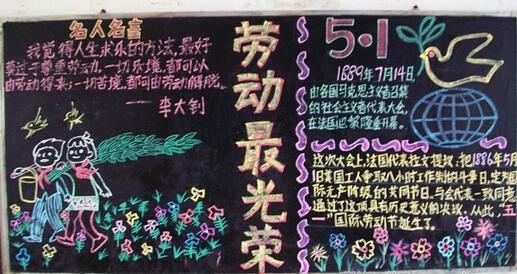 名人名言
我觉得人生求乐的方法,最好
莫过于尊重劳动。一切乐境,都可以
由劳动得来;一切苦境,都可由劳动解脱。
——李大钊
劳动最光荣
5·1
1889年7月14日,
由各国马克思主义者召集
的社会主义者代表大会,
在法国巴黎隆重开幕。
这次大会上,法国代表拉文提议:把1886年5月
1日美国工人争取八小时工作制的斗争日,定为国
际无产阶级的共同节日。与会代表一致同意,
通过了这项具有历史意义的决议。从此,“五
一”国际劳动节诞生了。